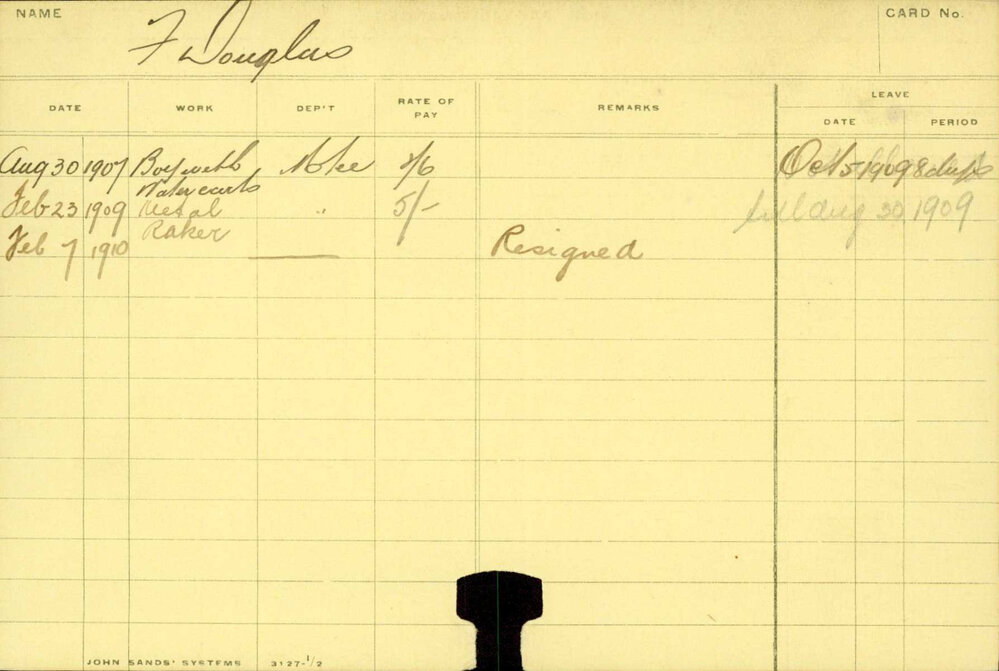 NAME
F Douglas
CARD No.
DATE WORK DEP'T RATE OF PAY REMARKS LEAVE
DATE PERIOD
Aug 30 1907 Boy with /6 Oct 5 1909 8 days
Water carts
Feb 23 1909 Metal " 5/- till Aug 30 1909
Raker
Feb 7 1910 Resigned
JOHN SANDS' SYSTEMS 3127-1/2